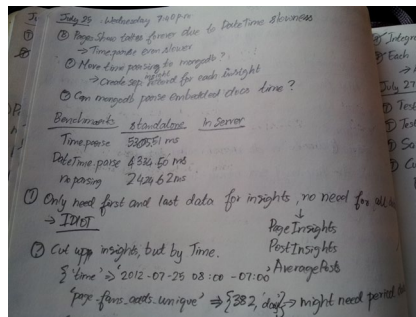 July 25 - Wednesday 7:40pm
Pages Show takes forever due to DateTime slowness
→ Time.parse even slower
Move time parsing to mongodb?
→ Create sep. for each Insight
Can mongodb parse embedded docs time?
Benchmarks Standalone In Server
Time.parse ms
DateTime.parse ms
no parsing ms
① Only need first and last data for insights, no need for
↓
→ IDIOT
PageInsights
PostInsights
AveragePosts
② Cut up insights, but by Time.
{ 'time' => '2012-07-25 08:00 -07:00'
'page_fans_adds_unique' => {382, 'day'} → might need period
Integr
Each
July 27